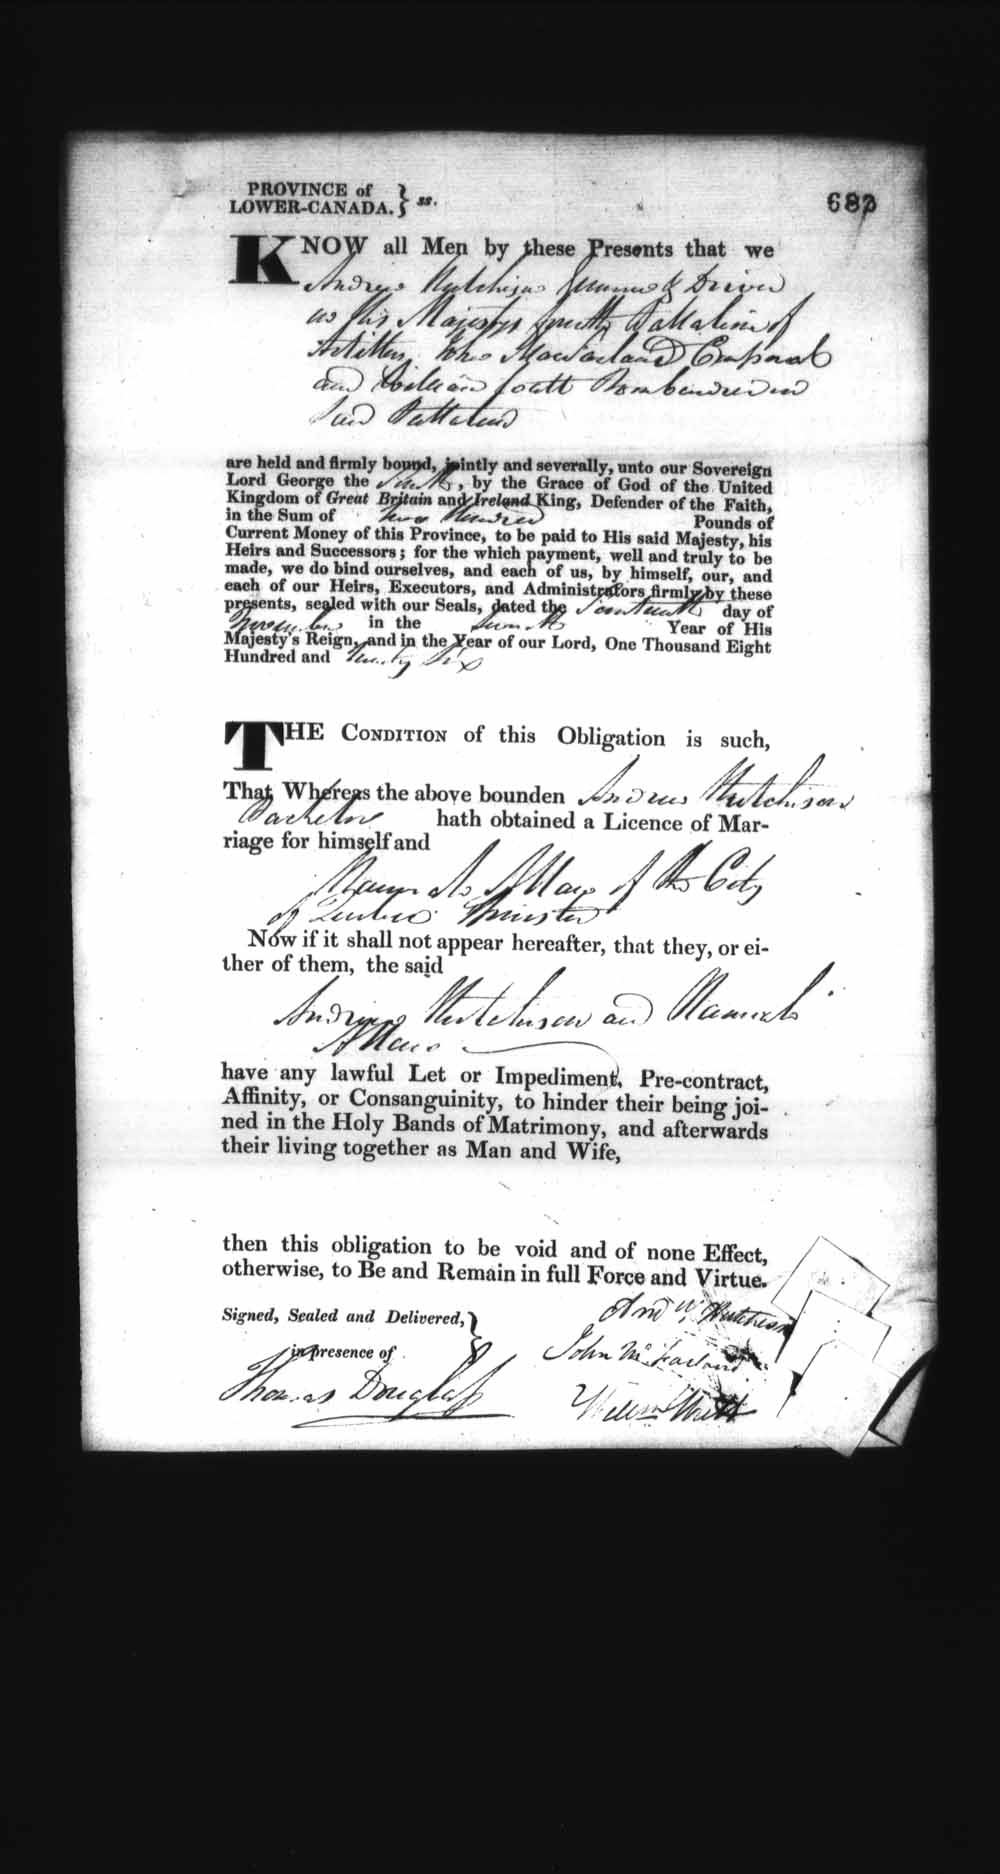 PROVINCE of
LOWER-CANADA. } ss.
KNOW all Men by these Presents that we
Andrew Hutchison Gunner & Driver
in His Majestys fourth Battalion of
Artillery, John MacFarland Corporal
and William Bombardier in
said Battalion
are held and firmly bound, jointly and severally, unto our Sovereign
Lord George the fourth, by the Grace of God of the United
Kingdom of Great Britain and Ireland King, Defender of the Faith,
in the Sum of Two Hundred Pounds of
Current Money of this Province, to be paid to His said Majesty, his
Heirs and Successors; for the which payment, well and truly to be
made, we do bind ourselves, and each of us, by himself, our, and
each of our Heirs, Executors, and Administrators firmly by these
presents, sealed with our Seals, dated the day of
November in the Seventh Year of His
Majesty's Reign, and in the Year of our Lord, One Thousand Eight
Hundred and Twenty Six
THE CONDITION of this Obligation is such,
That Whereas the above bounden Andrew Hutchison
Bachelor hath obtained a Licence of Mar-
riage for himself and
Hannah of the City
of Quebec Spinster
Now if it shall not appear hereafter, that they, or ei-
ther of them, the said
Andrew Hutchison and Hannah
have any lawful Let or Impediment, Pre-contract,
Affinity, or Consanguinity, to hinder their being joi-
ned in the Holy Bands of Matrimony, and afterwards
their living together as Man and Wife,
then this obligation to be void and of none Effect,
otherwise, to Be and Remain in full Force and Virtue.
Signed, Sealed and Delivered, }
in presence of
Andw Hutchison
John McFarland
Thomas Douglass
Willm